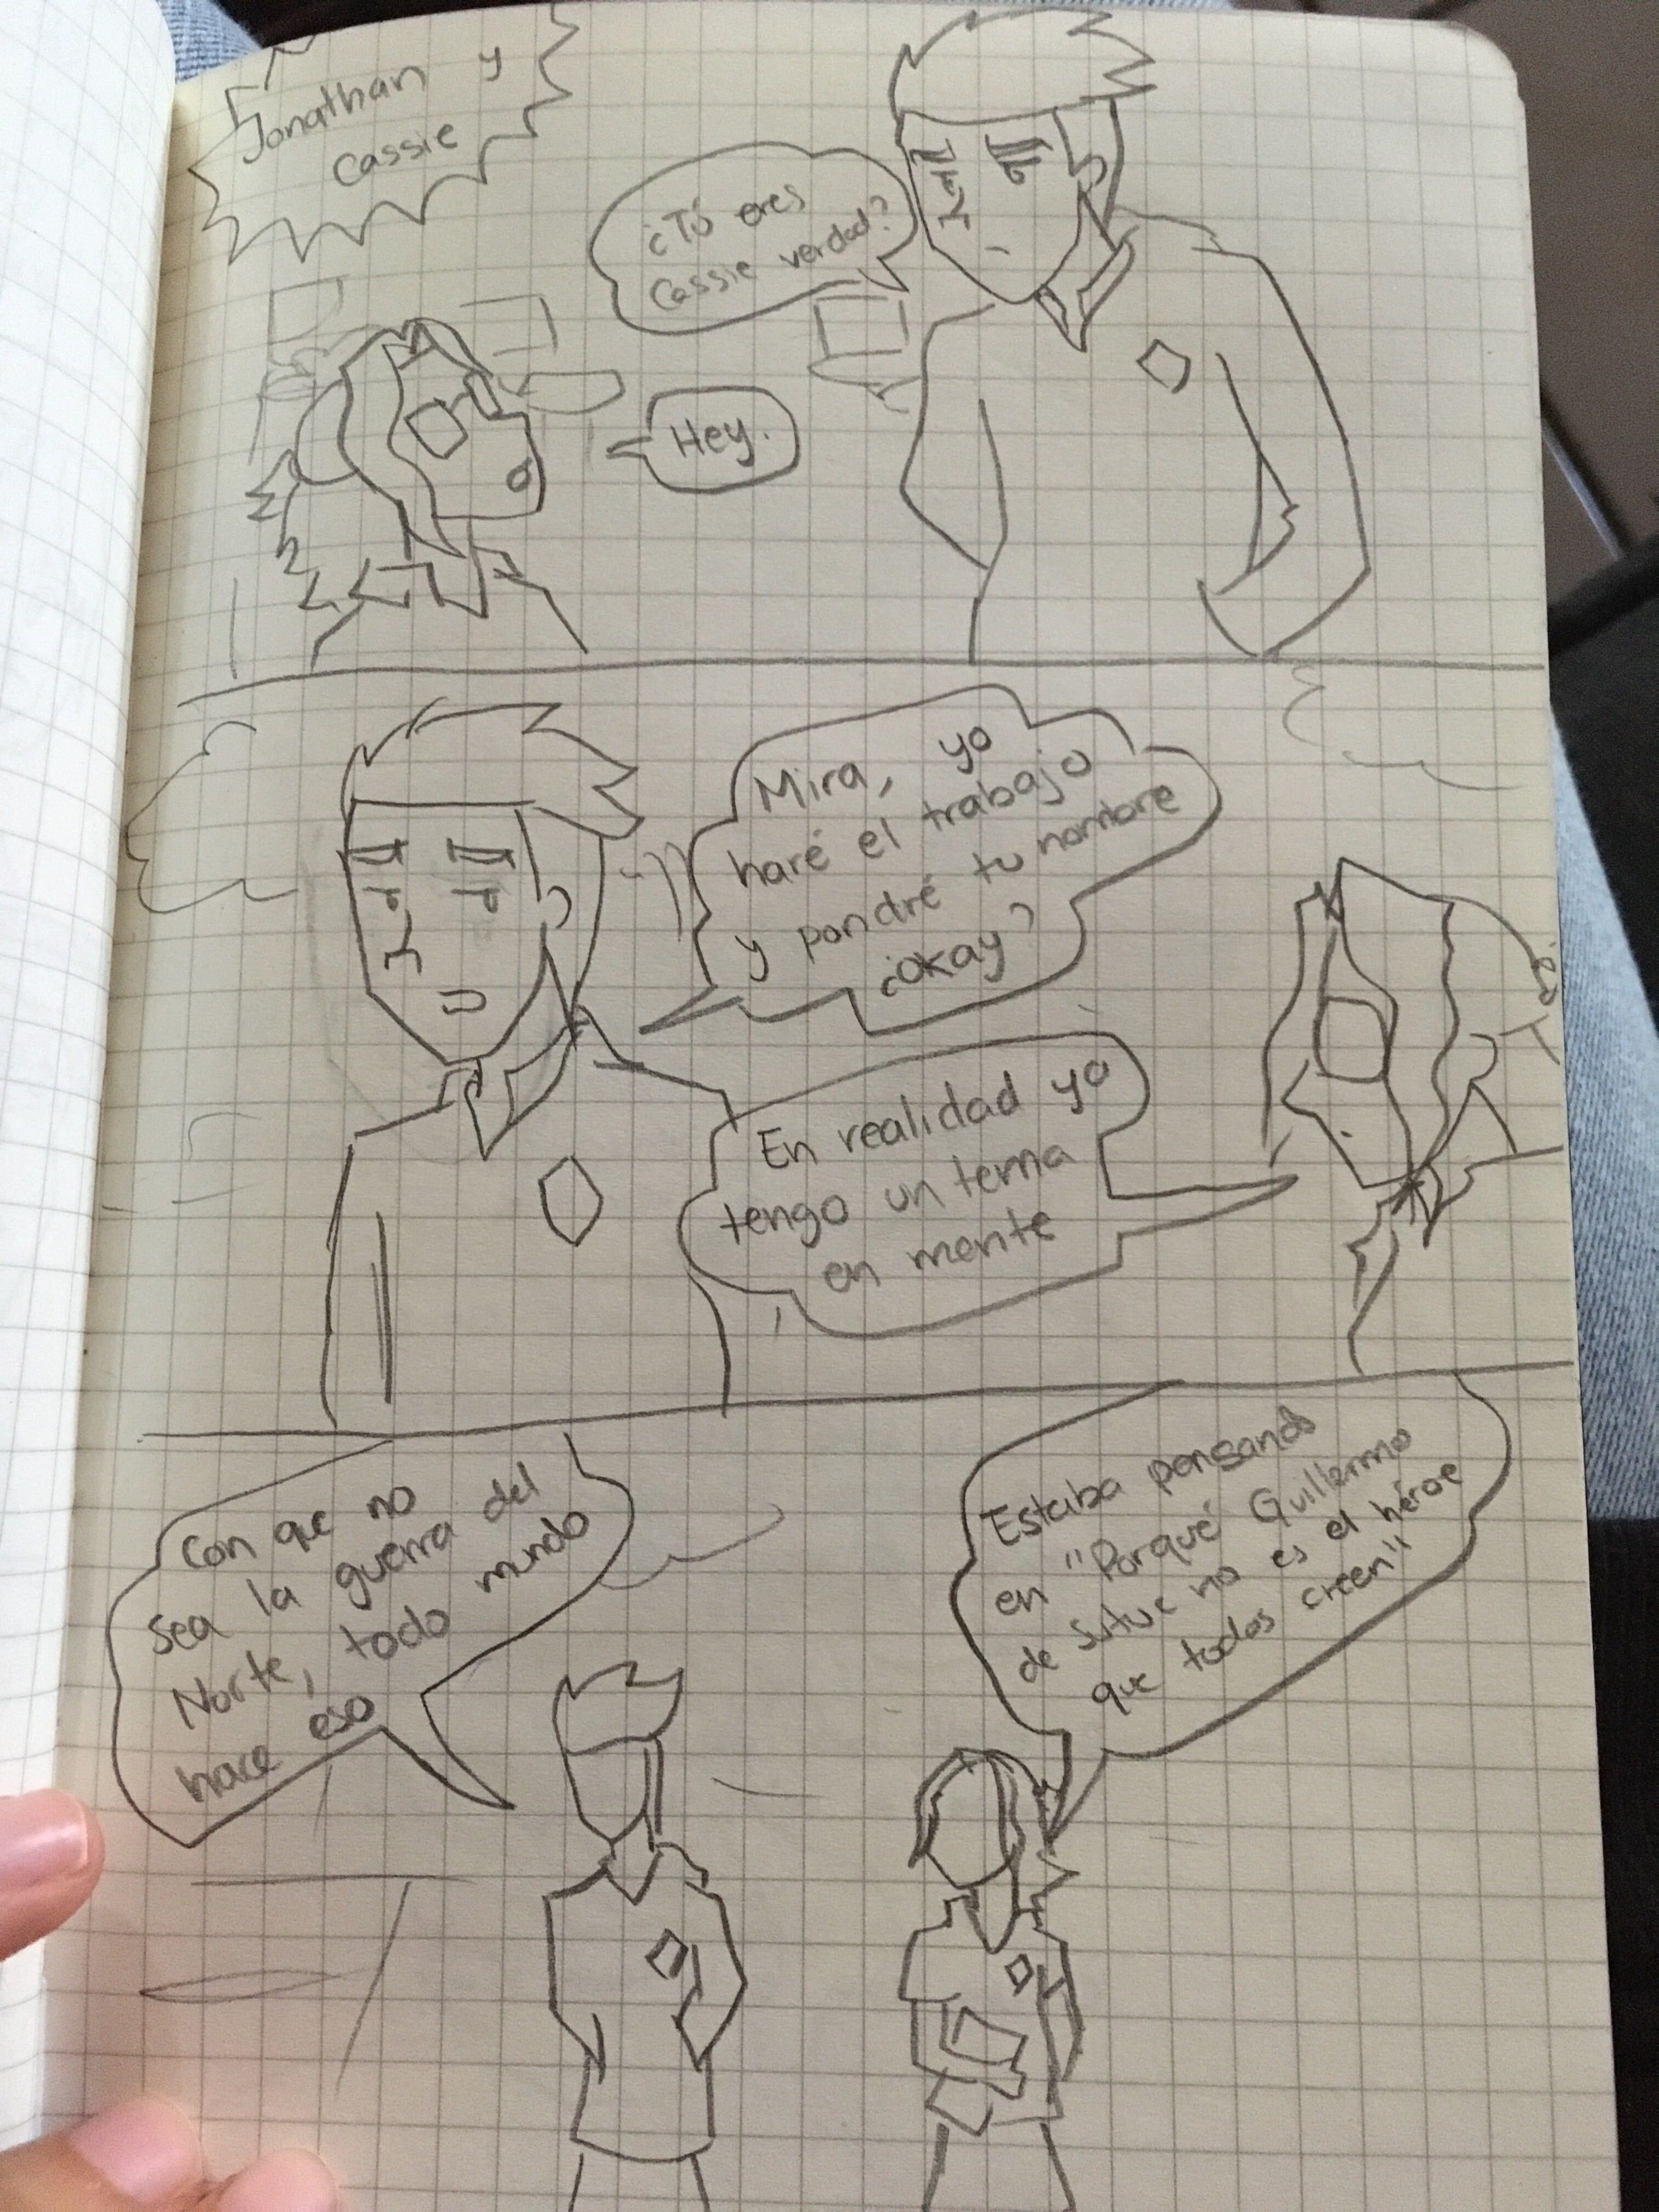 Jonathan y
Cassie
¿Tú eres
Cassie verdad?
Hey.
Mira, yo
haré el trabajo
y pondré tu nombre
¿okay?
En realidad yo
tengo un tema
en mente
Con que no
sea la guerra del
Norte, todo mundo
hace eso
Estaba pensando
en "Porqué Guillermo
de no es el héroe
que todos creen"